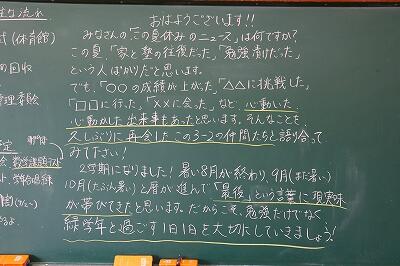 おはようございます!!
みなさんの「この夏休みのニュース」は何ですか?
この夏、「家と塾の往復だった」「勉強漬けだった」
という人ばかりだと思います。
でも、「○○の成績が上がった」「△△に挑戦した」
「□□に行った」「××に会った」など、心動いた、
心動かした出来事もあったと思います。そんなことを
久しぶりに再会したこの3-2の仲間たちと語り合って
みて下さい!
2学期になりました!暑い8月が終わり、9月(まだ暑い)
10月(たぶん暑い)と暦が進んで「最後」という言葉に現実味
が帯びてきたと思います。だからこそ、勉強だけでなく
緑学年と過ごす1日1日を大切にしていきましょう!
流れ
式(体育館)
の回収
管理委員会